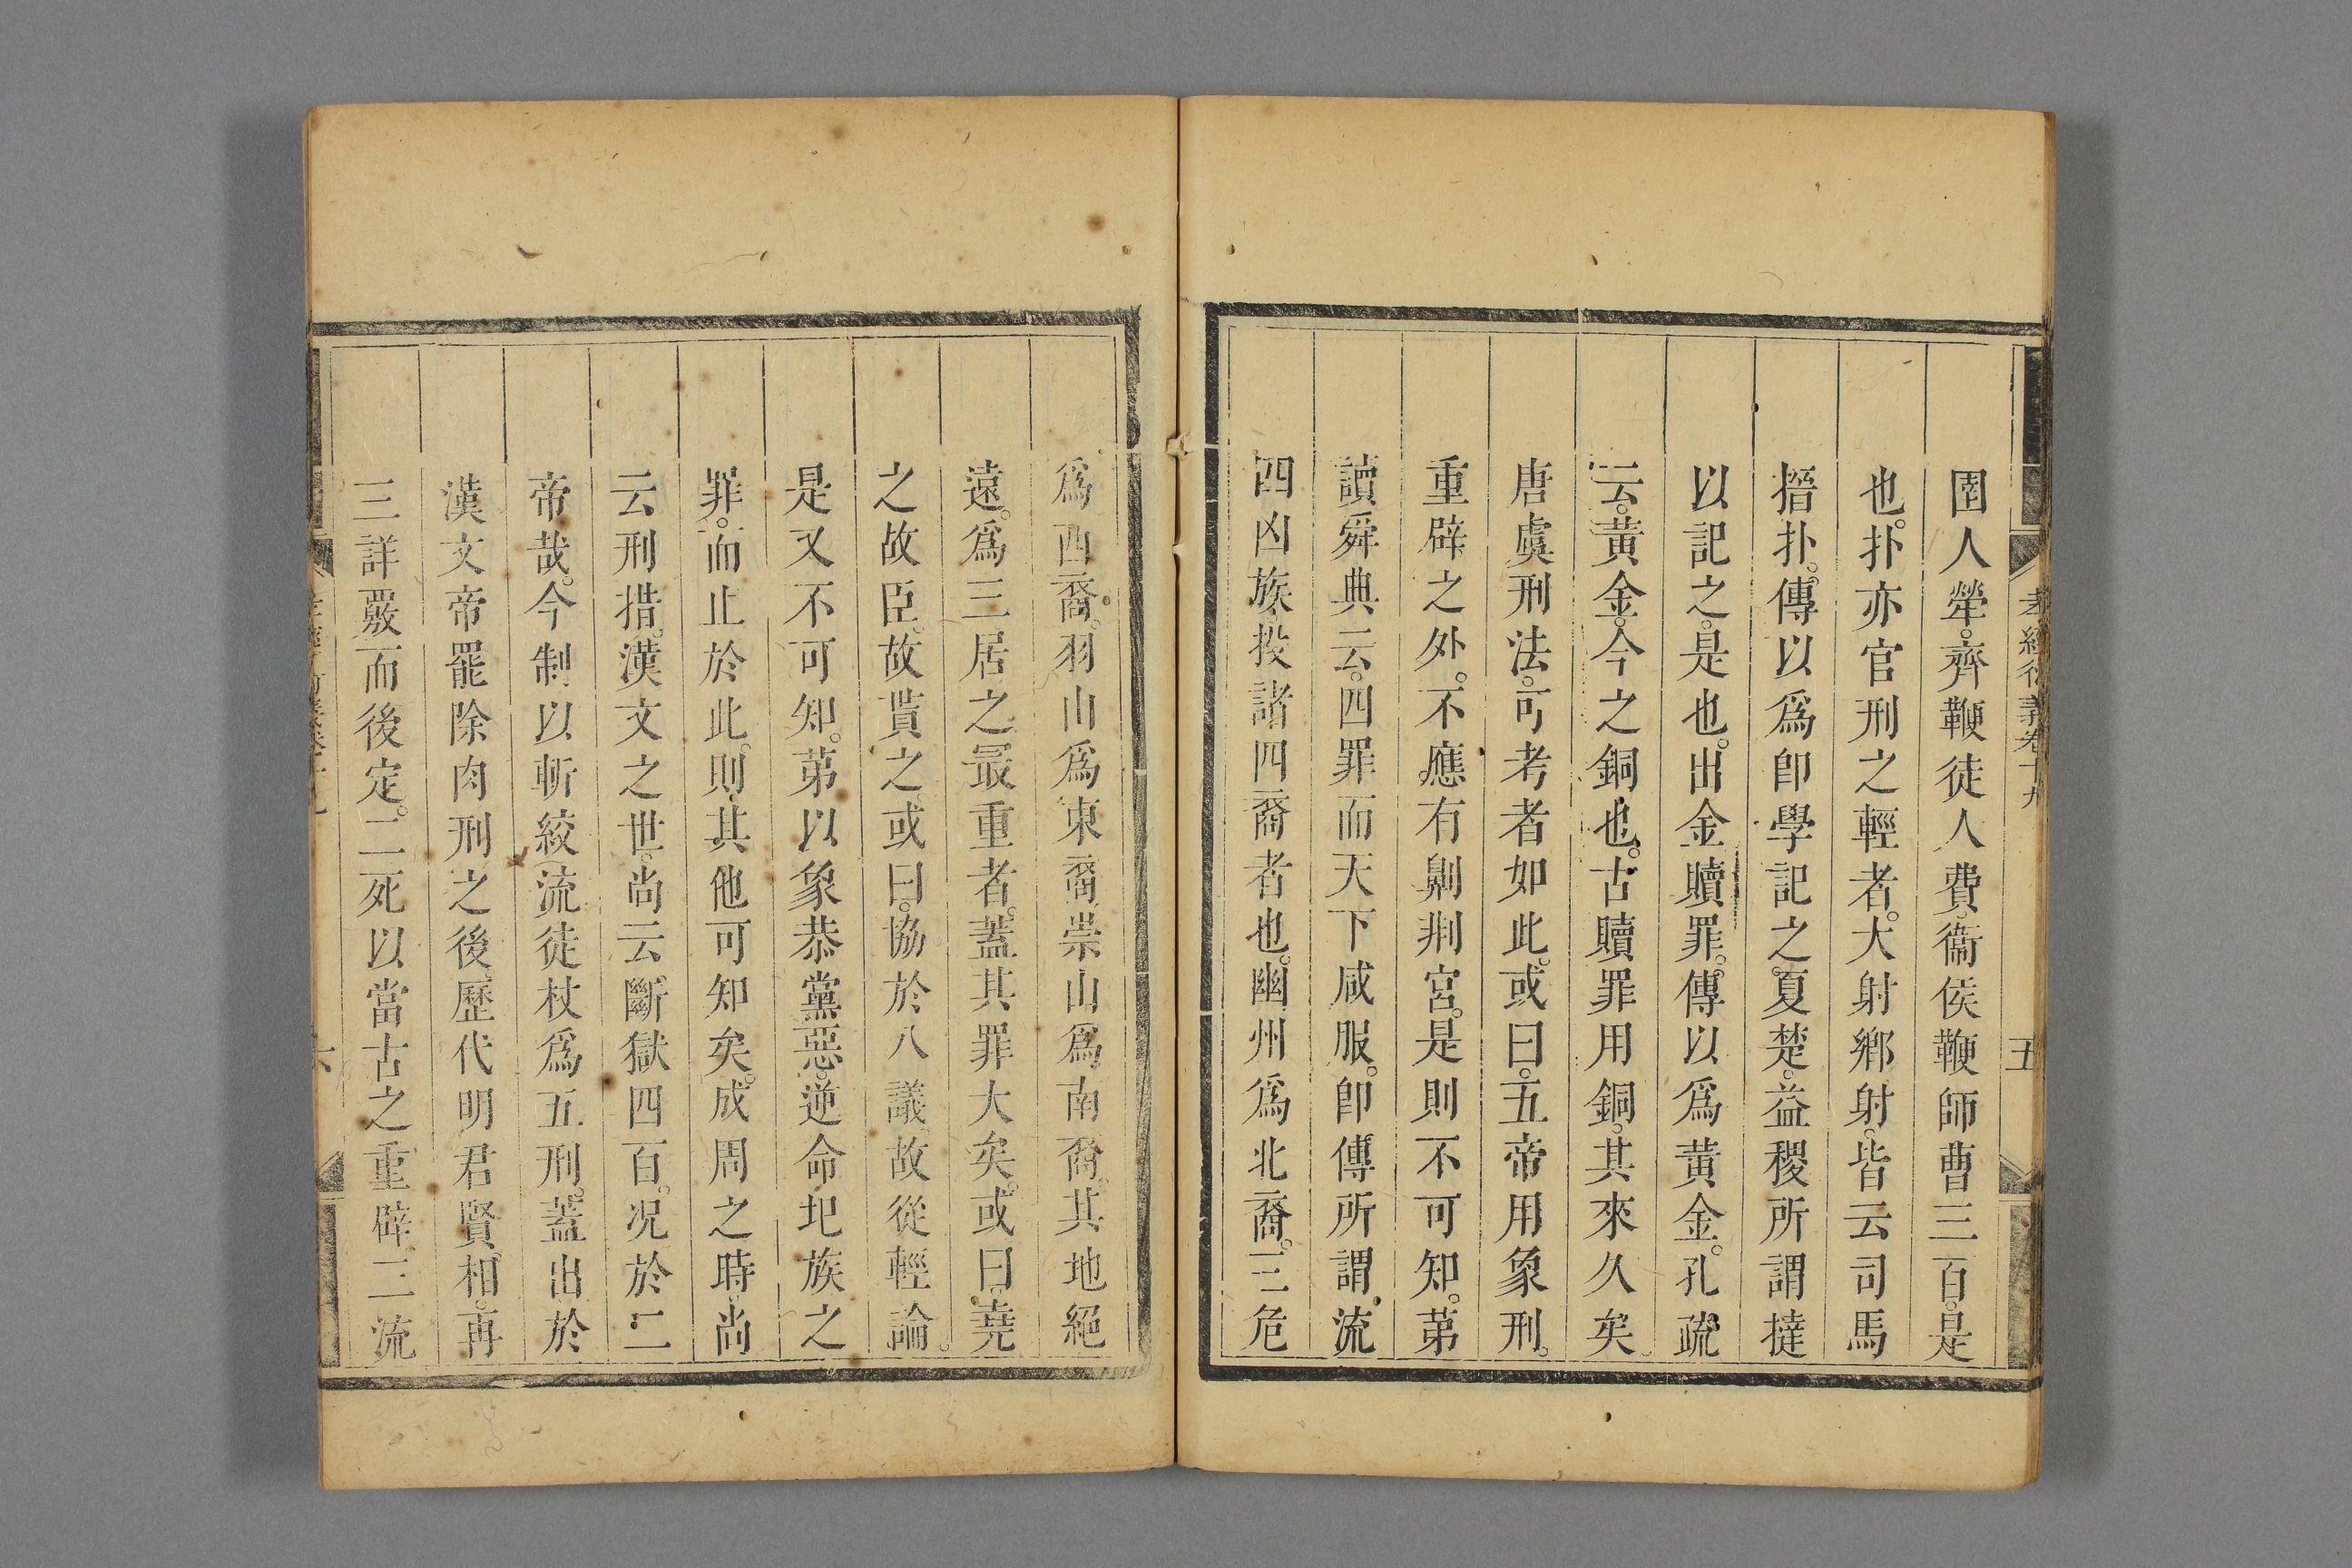 孝經衍義卷十九
五
圉人犖。齊鞭徒人費。衞侯鞭師曹三百。是
也。扑亦官刑之輕者。大射鄉射。皆云司馬
搢扑。傳以爲卽學記之夏楚。益稷所謂撻
以記之。是也。出金贖罪。傳以爲黃金。孔疏
云。黃金。今之銅也。古贖罪用銅。其來久矣。
唐虞刑法。可考者如此。或曰。五帝用象刑。
重辟之外。不應有劓剕宮。是則不可知。第
讀舜典云。四罪而天下咸服。卽傳所謂流
四凶族。投諸四裔者也。幽州爲北裔。三危
爲西裔。羽山爲東裔。崇山爲南裔。其地絕
遠。爲三居之最重者。蓋其罪大矣。或曰。堯
之故臣。故貰之。或曰。協於八議。故從輕論。
是又不可知。第以象恭黨惡。逆命圯族之
罪。而止於此。則其他可知矣。成周之時。尚
云刑措。漢文之世。尚云斷獄四百。况於二
帝哉。今制以斬絞流徒杖爲五刑。蓋出於
漢文帝罷除肉刑之後。歷代明君賢相。再
三詳覈而後定。二死以當古之重辟。三流
六